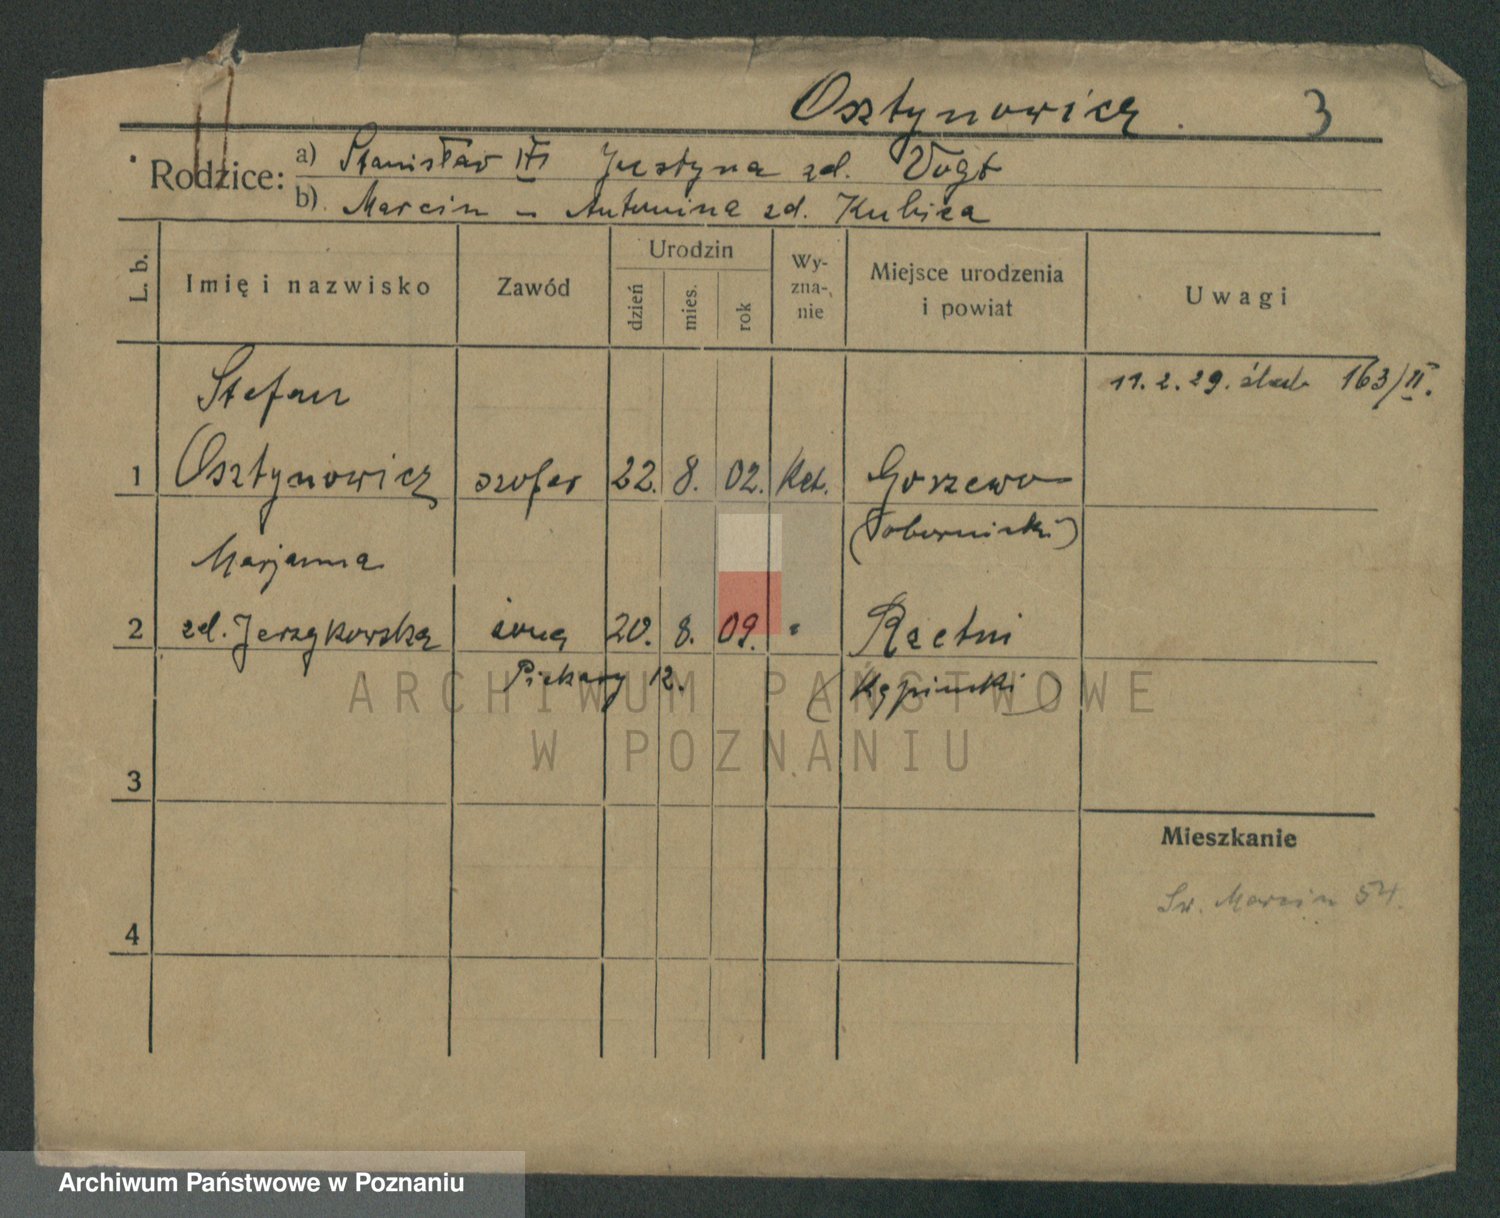 Osztynowicz. 3
Rodzice: a) Stanisław i Justyna zd. Vogt
b) Marcin - Antonina zd. Kubica
L. b.
Imię i nazwisko
Zawód
Urodzin
dzień
mies.
rok
Wy-
zna-
nie
Miejsce urodzenia
i powiat
Uwagi
Stefan
11. 2. 29. ślub 163/II.
1 Osztynowicz szofer 22. 8. 02. Kat. Goszewo
(obornicki)
Marjanna
2 zd. Jerzykowska żona 20. 8. 09. " Rzetni
Piekary 12. (Kępiński)
ARCHIWUM PAŃSTWOWE
W POZNANIU
3
Mieszkanie
Św. Marcin 54.
4
Archiwum Państwowe w Poznaniu